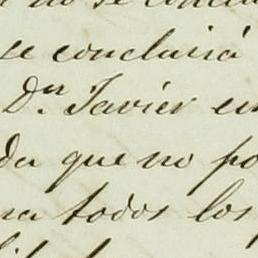 no se conclu
se concluirá
Dn. Javier en
da que no po
na todos los